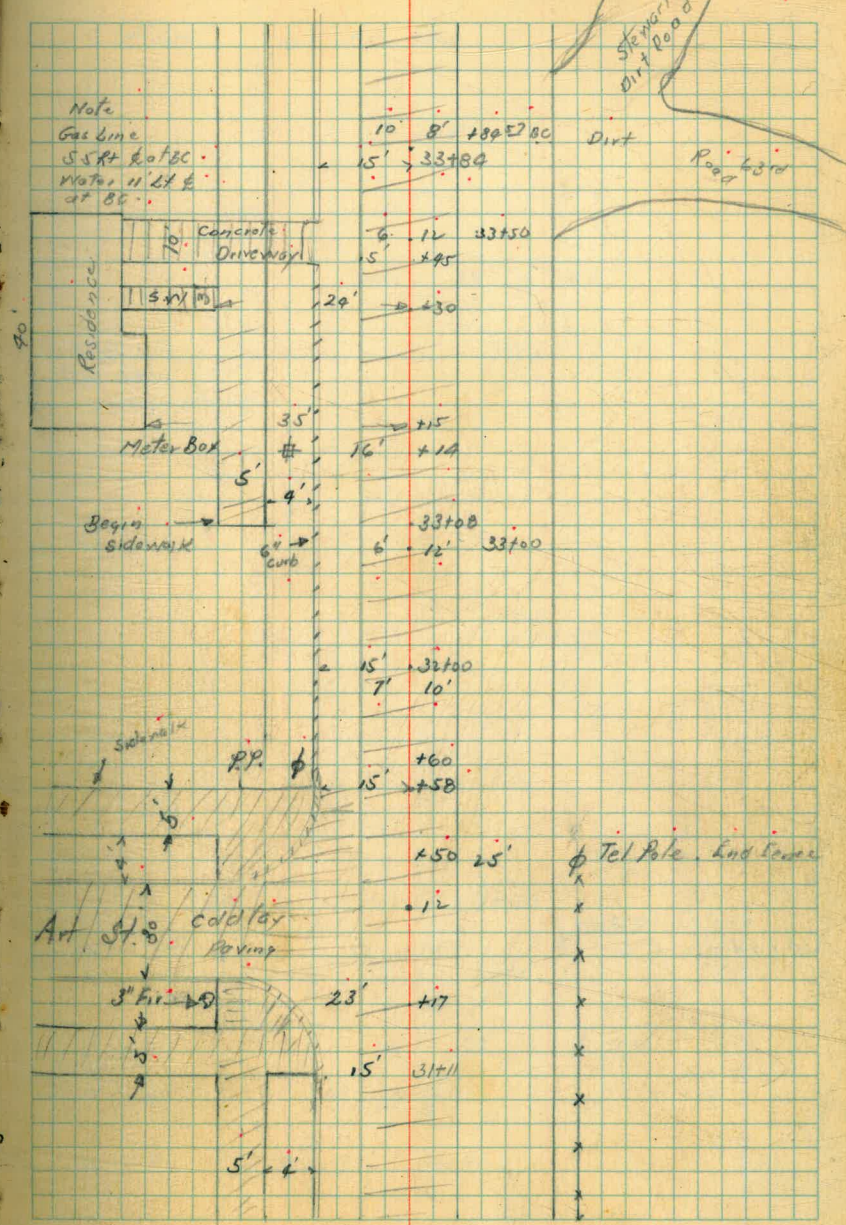 Stewart
Dirt Road
Note
Gas Line
5.5 Rt ₵ at BC
Water 11' Lt ₵
at BC
10' 8' +84 57 BC
Dirt
Road 63rd
15' 33+84
10'
Concrete
Driveway
6 12 33+50
5' +45
SW
24' +30
40'
Residence
35' +15
Meter Box
16' +14
5'
4'
Begin
sidewalk
33+08
6"
curb
6' 12' 33+00
15' 32+00
7' 10'
Sidewalk
P.P.
+60
15' +58
5'
4'
+50 25' Tel Pole. End Fence
12
Art St. 30'
Cold lay
Paving
3" Fir 23' +17
5'
15' 31+11
5' 4'